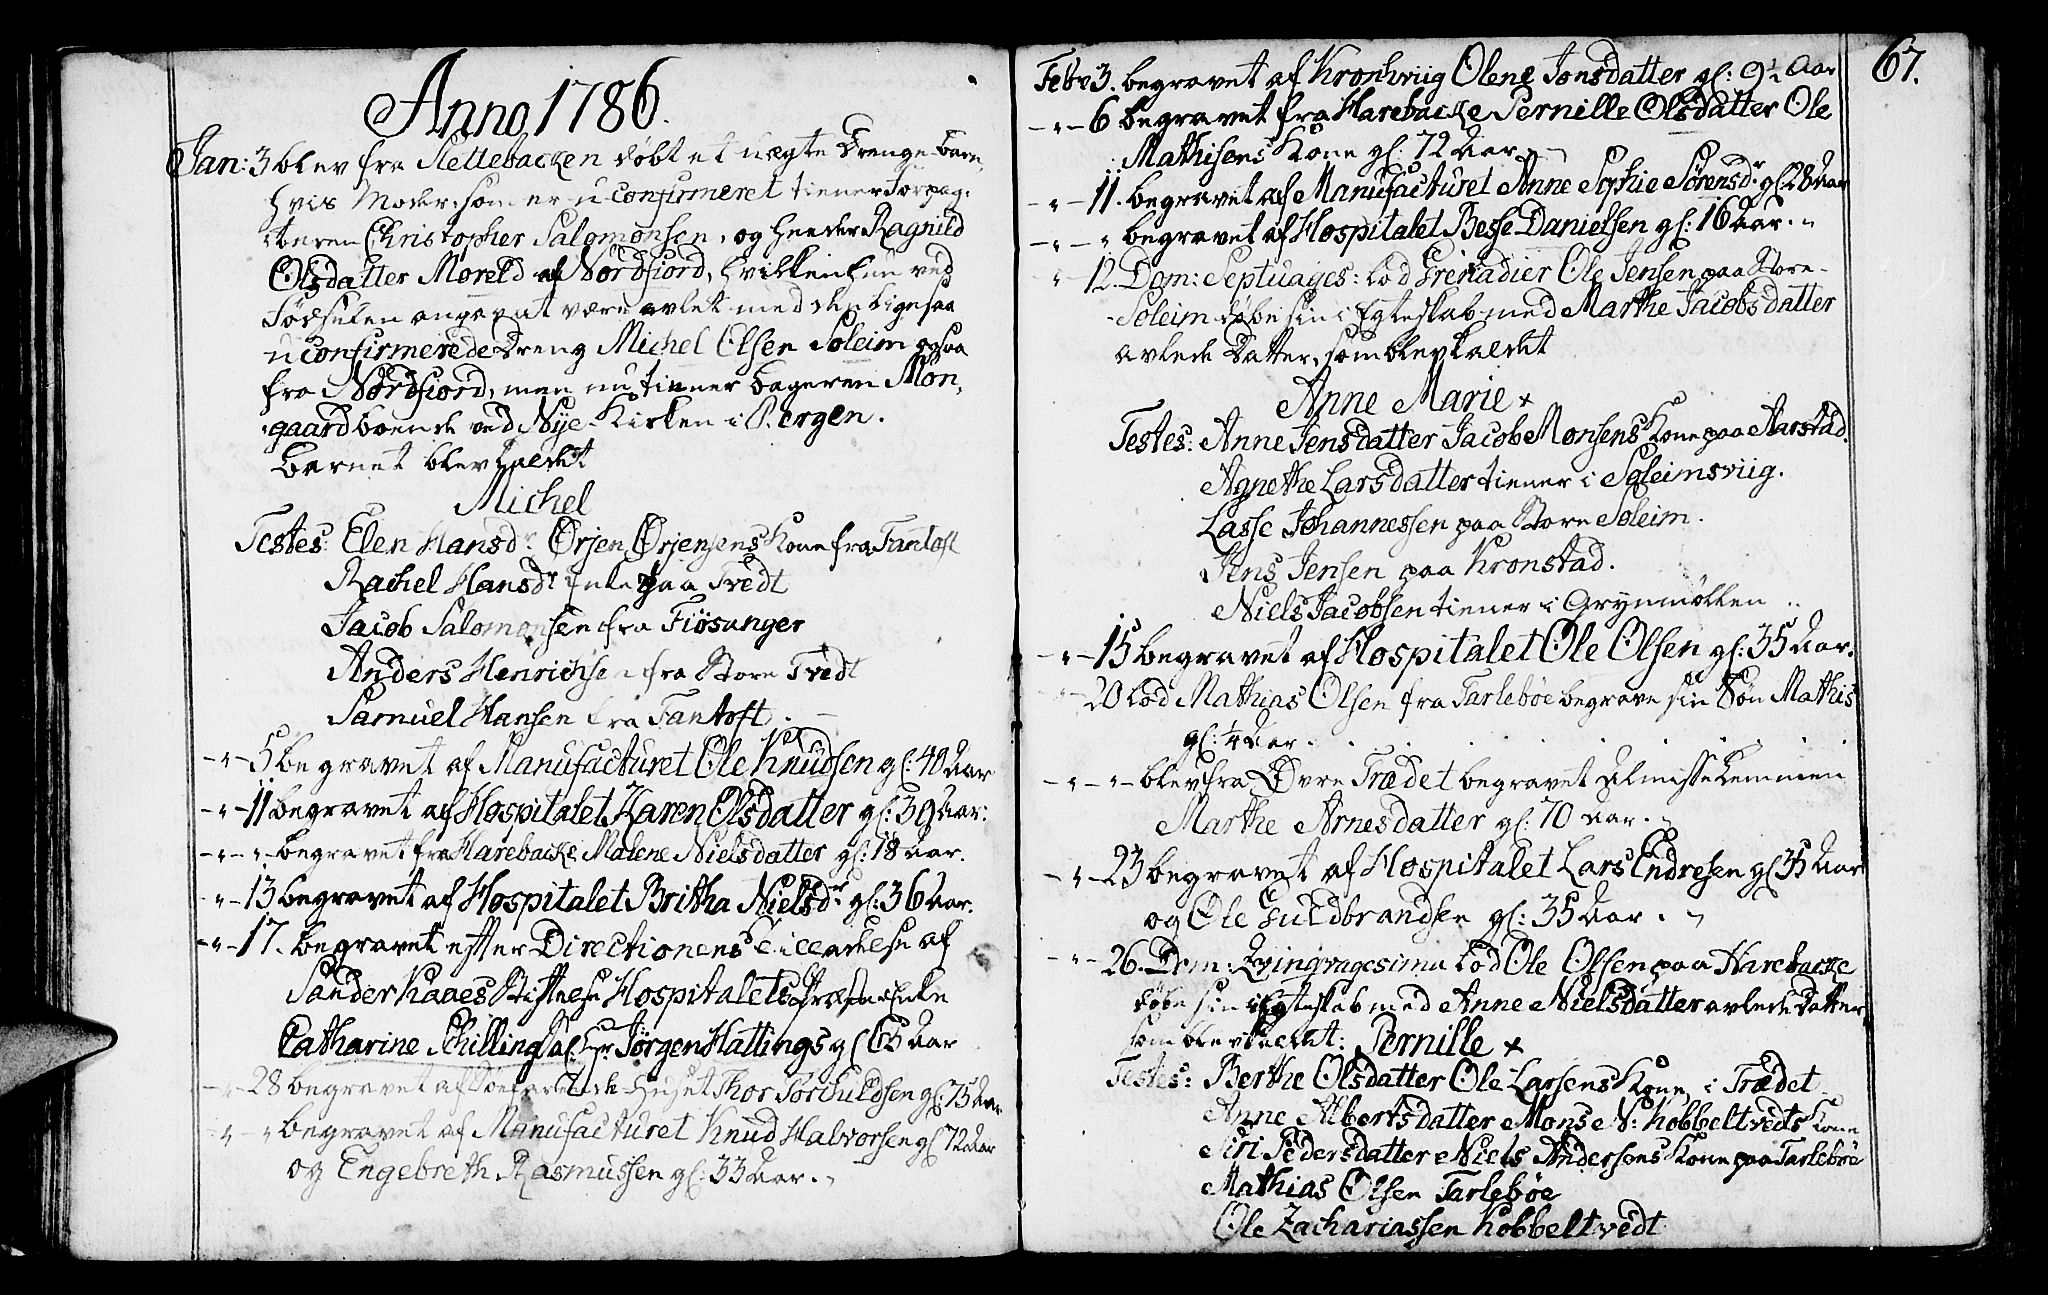 Anno 1786.
Jan: 3 blev fra Slettebacken døbt et uægte Drenge-Barn,
hvis Moder, som er u confirmeret tiener Forpag-
teren Christopher Salomonsen, og heeder Ragnild
Olsdatter Moreld af Nordfiord, hvilken hun ved
Fødselen angav at være avlet med den ligesaa
u confirmerede Dreng Michel Olsen Soleim ogsaa
fra Nordfiord, men nu tiener Bageren Mon-
gaard boende ved Nye-Kirken i Bergen.
Barnet blev kaldet
Michel
Testes: Elen Hansdr. Ørjen Ørjensens Kone fra Fantoft
Rachel Hansdr Enke paa Tvedt
Jacob Salomonsen fra Fiøsanger
Anders Henrichsen fra Store Tvedt
Samuel Hansen fra Fantoft.
-"- 5 begravet af Manufacturet Ole Knudsen gl: 40 Aar
-"- 11 begravet af Hospitalet Karen Olsdatter gl: 39 Aar:
-"-"- begravet fra Harebacke Malene Nielsdatter gl: 18 Aar.
-"- 13 begravet af Hospitalet Britha Nielsdr gl: 36 Aar.
-"- 17. begravet efter Directionens Tilladelse af
Sander Kaaes Stiftelse Hospitalets Præste Enke
Catharine Schilling Sal: Hr Jørgen Hattings gl 63 Aar
-"- 28 begravet af Søefarende-Huset Thor Torchildsen gl: 75 Aar
-"-" begravet af Manufacturet Knud Halvorsen gl 72 Aar
og Engebreth Rasmussen gl: 33 Aar.
67.
Febr 3. begravet af Kronhviig Olene Jonsdatter gl: 9½ Aar
-"- 6 begravet fra Harebacke Pernille Olsdatter Ole
Mathisens Kone gl: 72 Aar
-"- 11. begravet af Manufacturet Anne Sophie Sørensdr gl 28 Aar
-"-" begravet af Hospitalet Besse Danielsen gl: 16 Aar.
" - 12. Dom: Septuages: lod Grenadier Ole Jensen paa Store-
Soleim døbe sin i Egteskab med Marthe Jacobsdatter
avlede Datter, som blev kaldet
Anne Marie +
Testes: Anne Jensdatter Jacob Monsens Kone paa Aarstad.
Agnethe Larsdatter tiener i Soleimsviig.
Lasse Johannessen paa Store Soleim.
Jens Jensen paa Kronstad.
Niels Jacobsen tiener i Grynmøllen
-"- 15 begravet af Hospitalet Ole Olsen gl: 35 Aar.
-"- 20 lod Mathias Olsen fra Tarlebøe begrave sin Søn Mathis
gl: ¼ Aar.
-"-"- blev fra Øvre Trædet begravet Almisselemmen
Marthe Arnesdatter gl: 70 Aar.
-"- 23 begravet af Hospitalet Lars Endresen gl 35 Aar
og Ole Guldbrandsen gl: 35 Aar.
-"- 26. Dom: Qvinqvagesima lod Ole Olsen paa Harebacke
døbe sin i Egteskab med Anne Nielsdatter avlede Datter,
som blev kaldet: Pernille +
Testes: Berthe Olsdatter Ole Larsens Kone, i Trædet
Anne Albertsdatter Mons N: Kobbeltvedts Kone
Siri Pedersdatter Niels Andersens Kone paa Tarlebøe
Mathias Olsen Tarlebøe
Ole Zachariassen Kobbeltvedt